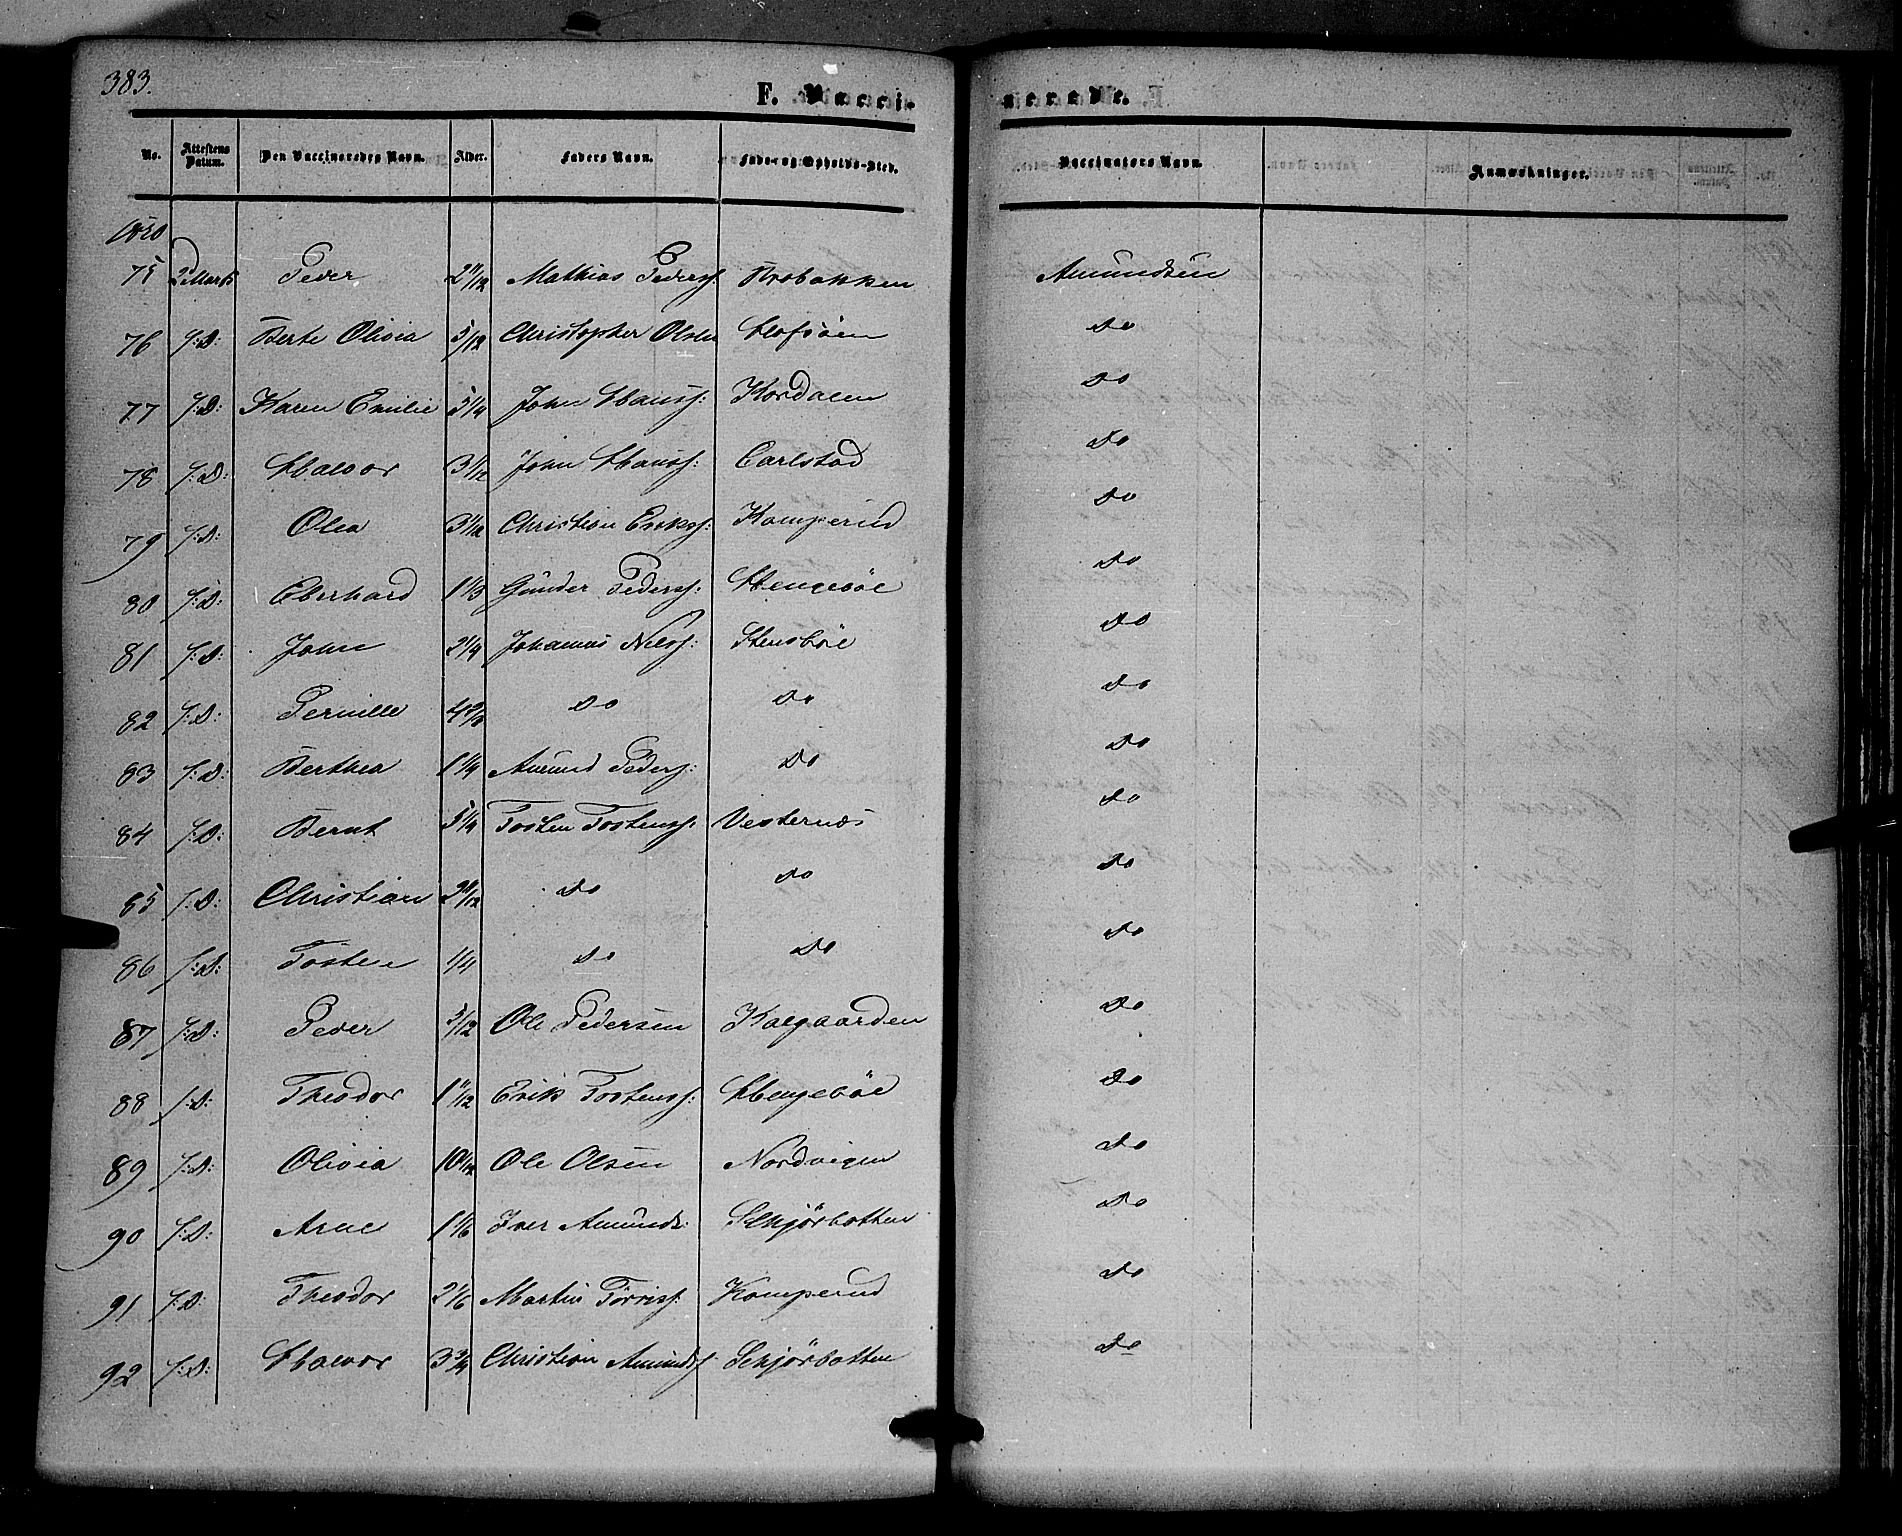 383.
F. Vacci- nerede.
No. Attestens Datum. Den Vaccineredes Navn. Alder. Faders Navn. Føde- og Opholds-Sted. Vaccinators Navn. Anmærkninger.
1850
75 2 Marts Peder 2 11/12 Mathias Peders: Brobakken Amundsen
76 S:D: Berte Olivia 5/12 Christopher Olsen Do
77 S:D: Karen Emilie 5 1/4 John Hanss: Kordalen Do
78 S:D: Halvor 3 1/12 John Hanss: Carlstad Do
79 S:D: Olea 3 1/12 Christian Erikss: Kamperud Do
80 S:D: Eberhard 1 1/3 Gunder Pederss: Hengebøe Do
81 S:D: John 2 1/4 Johannes Nilss: Stensbøe Do
82 S:D: Pernille Do Do Do
83 S:D: Berthea 1 1/4 Amund Peders: Do Do
84 S:D: Bernt 5 1/4 Tosten Tostenss: Vesternæs Do
85 S:D: Christian Do Do Do
86 S:D: Tosten 1/4 Do Do Do
87 S:D: Peder 5/12 Ole Pedersen Kalgaarden Do
88 S:D: Theodor 1 11/12 Erik Tostenss: Hengebøe Do
89 S:D: Olivia 10/12 Ole Olsen Nordvigen Do
90 S:D: Arne 1 1/6 Iver Amunds: Schjørbotten Do
91 S:D: Theodor 2 1/6 Martin Torriss: Kamperud Do
92 S:D: Halvor 3 3/4 Christian Amundss: Schjørbotten Do